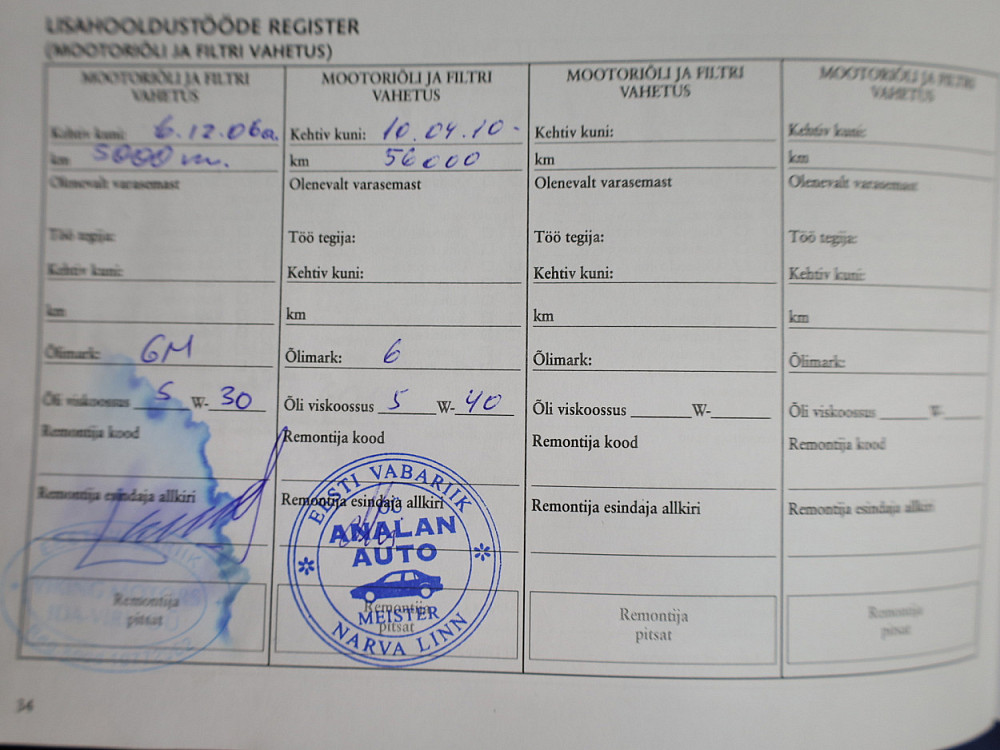 LISAHOOLDUSTÖÖDE REGISTER
(MOOTORIÕLI JA FILTRI VAHETUS)
MOOTORIÕLI JA FILTRI
VAHETUS
Kehtiv kuni: 6.12.06a.
km 5000
Olenevalt varasemast
Töö tegija:
Kehtiv kuni:
km
Õlimark: GM
Õli viskoossus 5 W- 30
Remontija kood
Remontija esindaja allkiri
Remontija
pitsat
MOOTORIÕLI JA FILTRI
VAHETUS
Kehtiv kuni: 10.04.10-
km 56000
Olenevalt varasemast
Töö tegija:
Kehtiv kuni:
km
Õlimark: 6
Õli viskoossus 5 W- 40
Remontija kood
Remontija esindaja allkiri
EESTI VABARIIK
ANALAN
AUTO
MEISTER
NARVA LINN
Remontija
pitsat
MOOTORIÕLI JA FILTRI
VAHETUS
Kehtiv kuni:
km
Olenevalt varasemast
Töö tegija:
Kehtiv kuni:
km
Õlimark:
Õli viskoossus W-
Remontija kood
Remontija esindaja allkiri
Remontija
pitsat
MOOTORIÕLI JA FILTRI
VAHETUS
Kehtiv kuni:
km
Olenevalt varasemast
Töö tegija:
Kehtiv kuni:
km
Õlimark:
Õli viskoossus W-
Remontija kood
Remontija esindaja allkiri
Remontija
pitsat
34